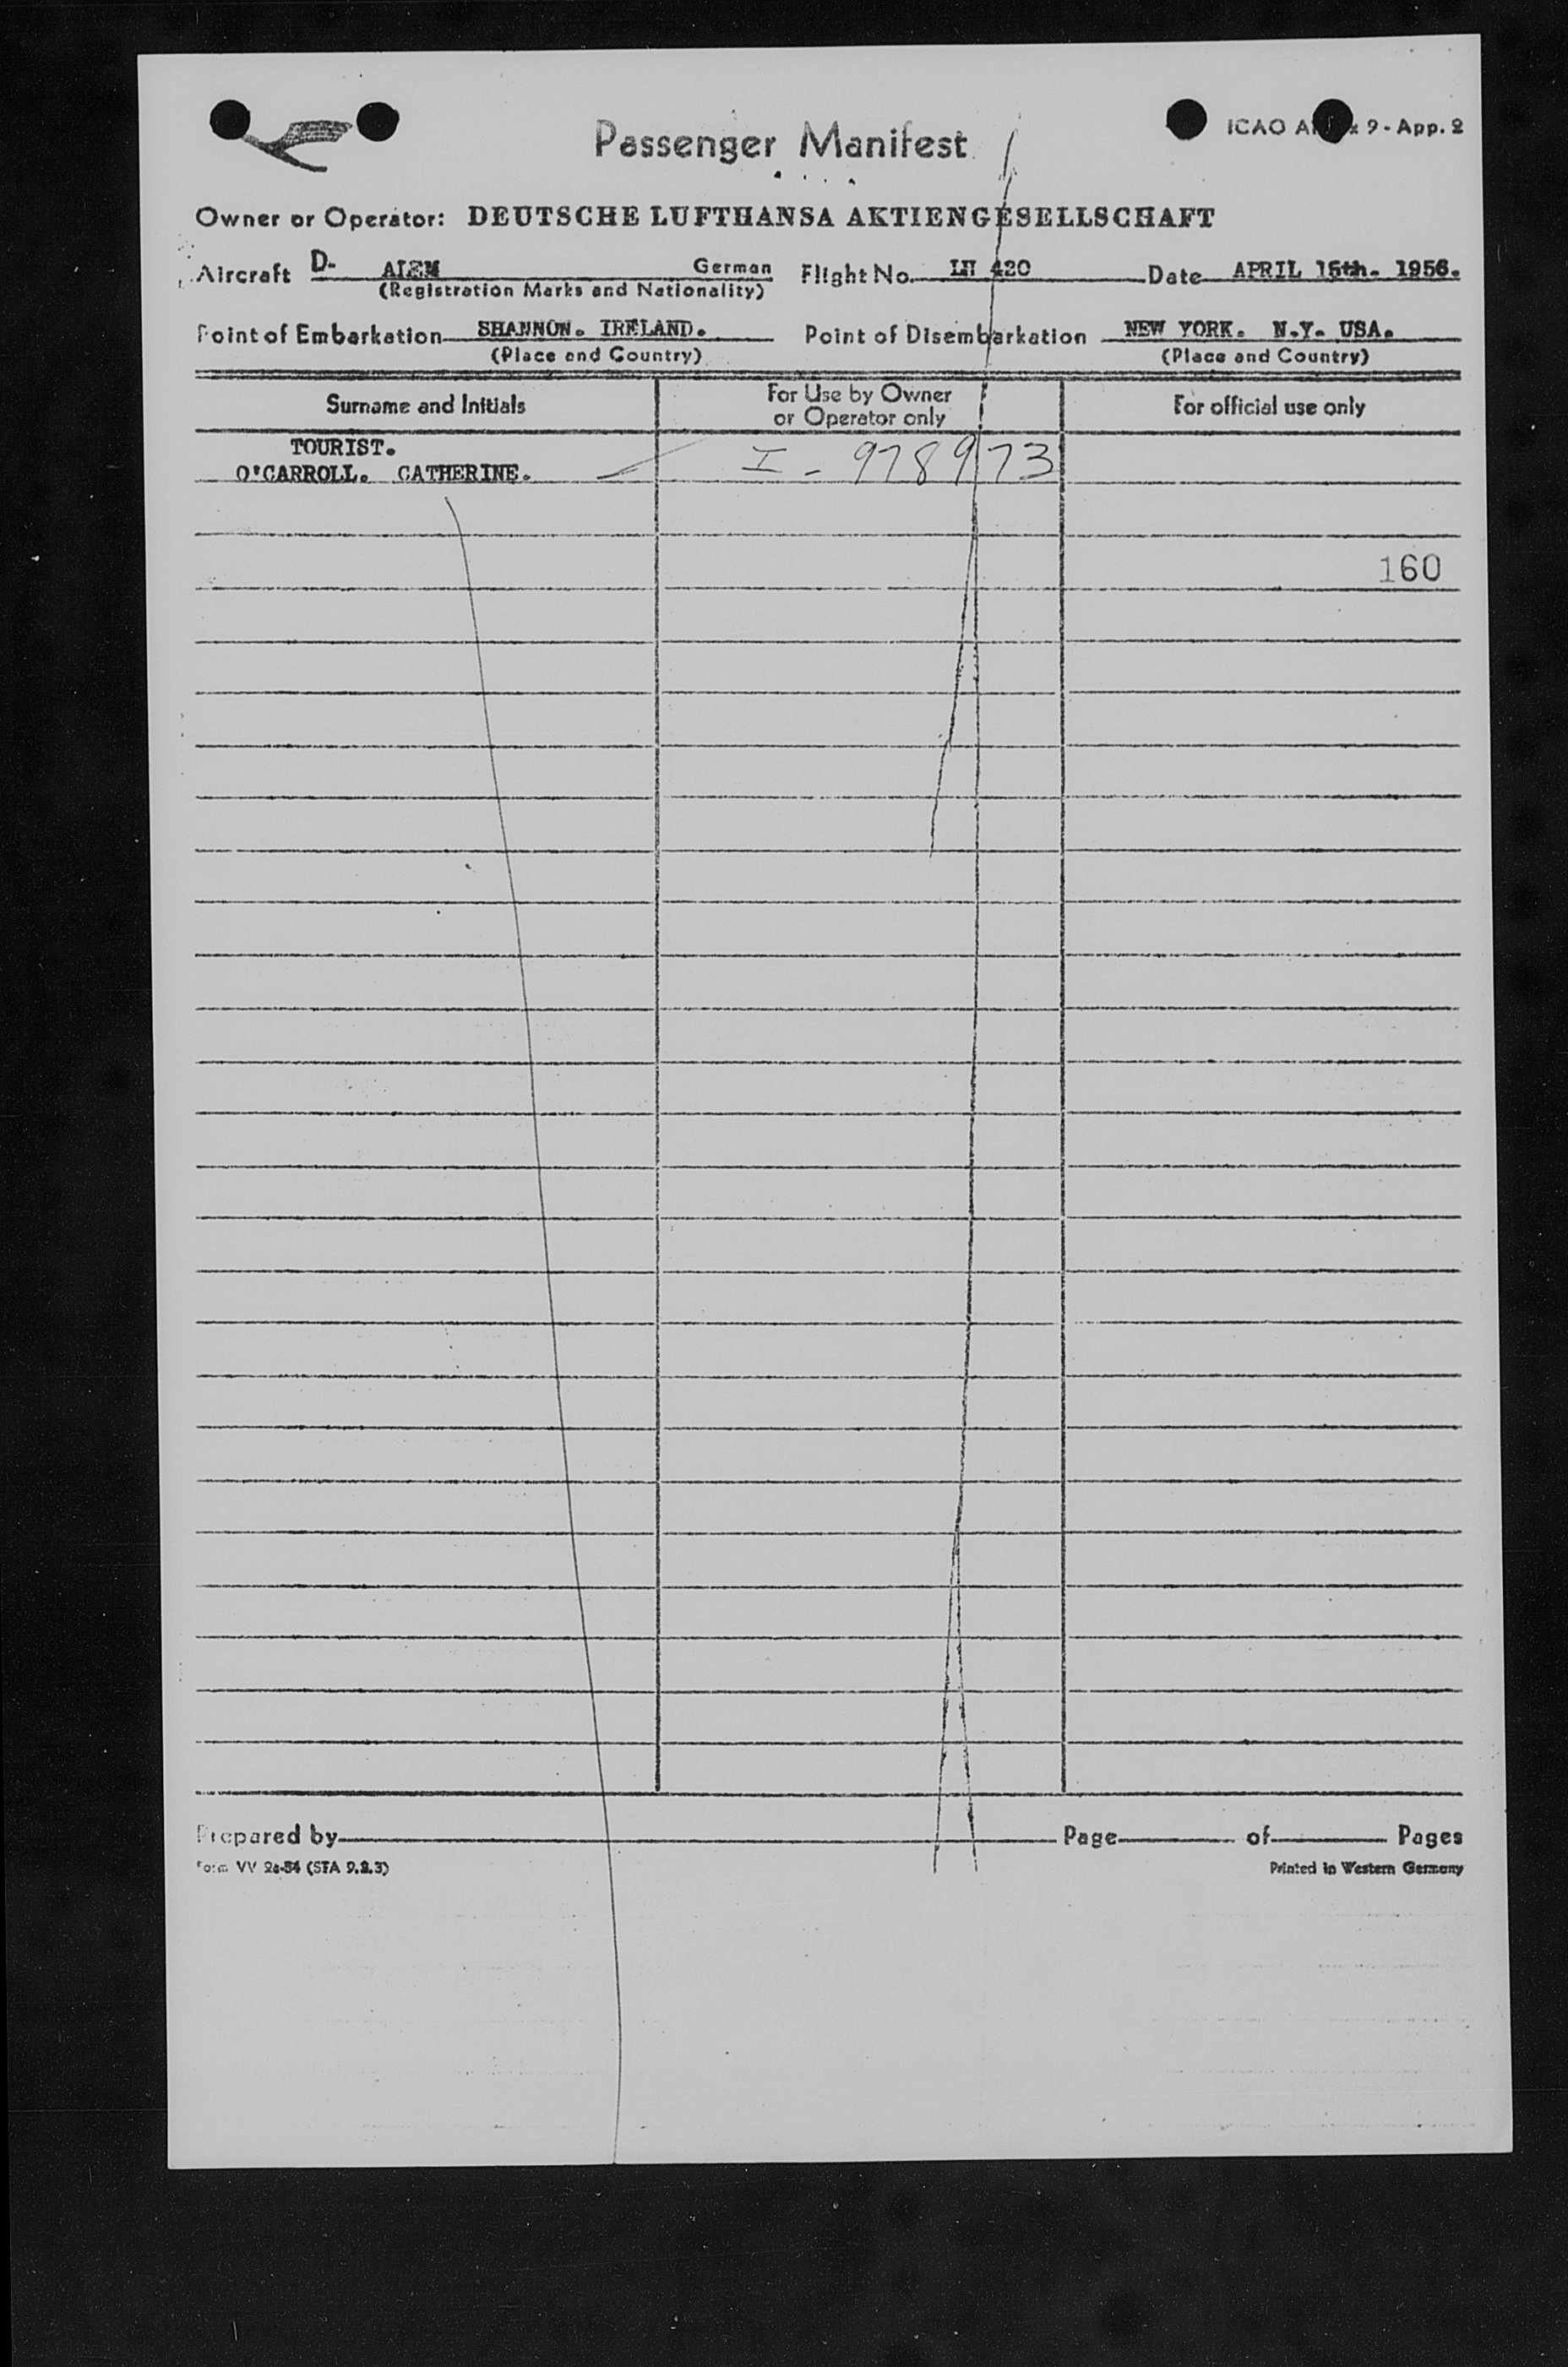 Passenger Manifest
ICAO 9 - App. 2
Owner or Operator: DEUTSCHE LUFTHANSA AKTIENGESELLSCHAFT
Aircraft D- ALEM German Flight No. LH 420 Date APRIL 15th. 1956.
(Registration Marks and Nationality)
Point of Embarkation SHANNON. IRELAND. Point of Disembarkation NEW YORK. N.Y. USA.
(Place and Country) (Place and Country)
Surname and Initials For Use by Owner or Operator only For official use only
TOURIST.
O'CARROLL. CATHERINE. I - 978973
160
Prepared by Page of Pages
Form VV 2a-54 (STA 9.2.3) Printed in Western Germany